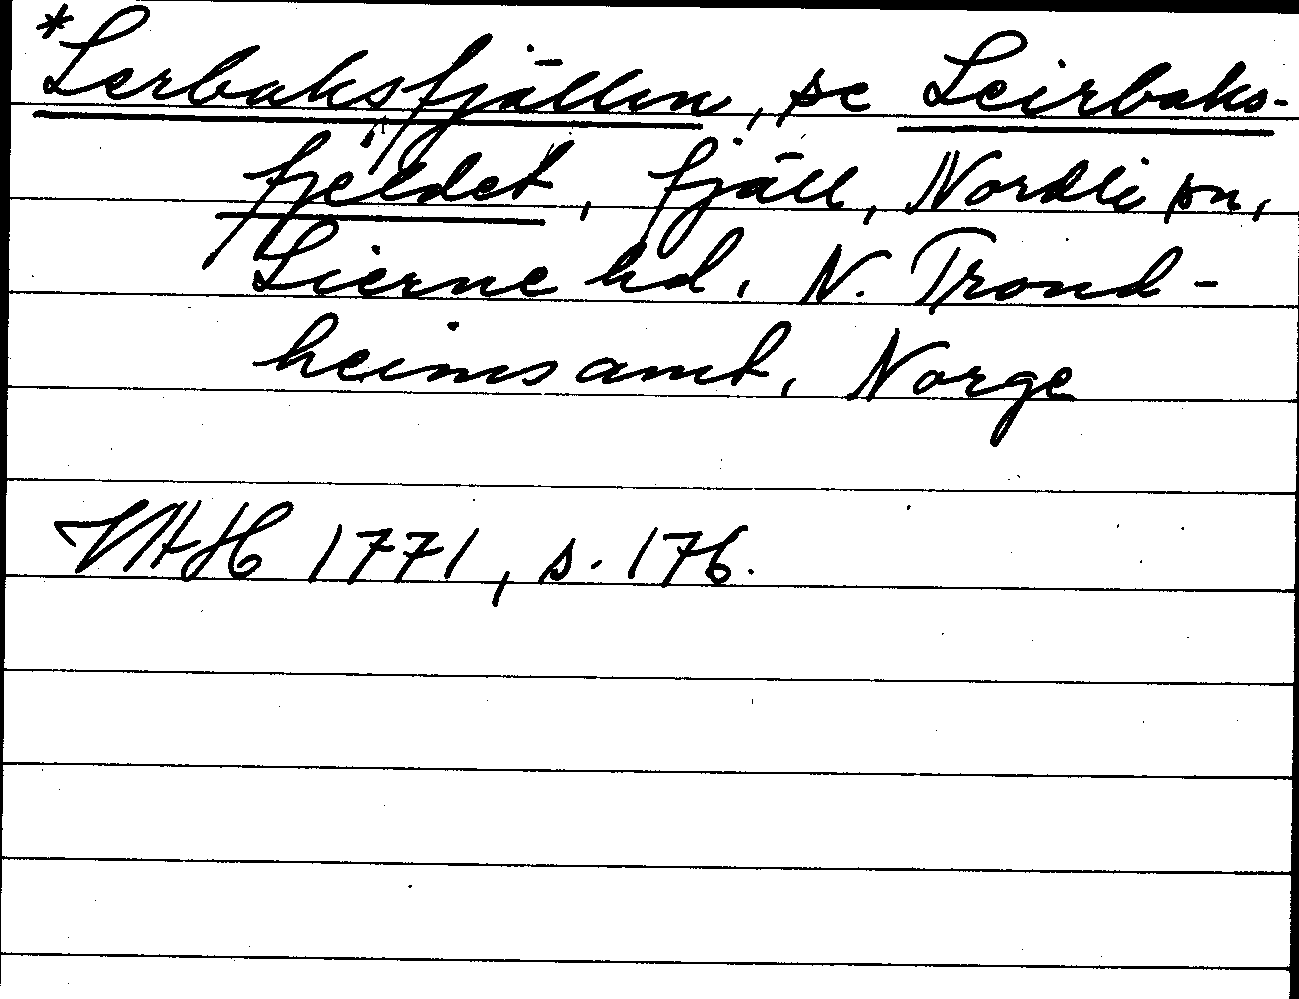 *Lerbaksfjällen, se Leirbaks-
fjeldet, fjäll, Nordli sn,
Lierne hd, N. Trond-
heims amt, Norge
VHAH 1771, s. 176.